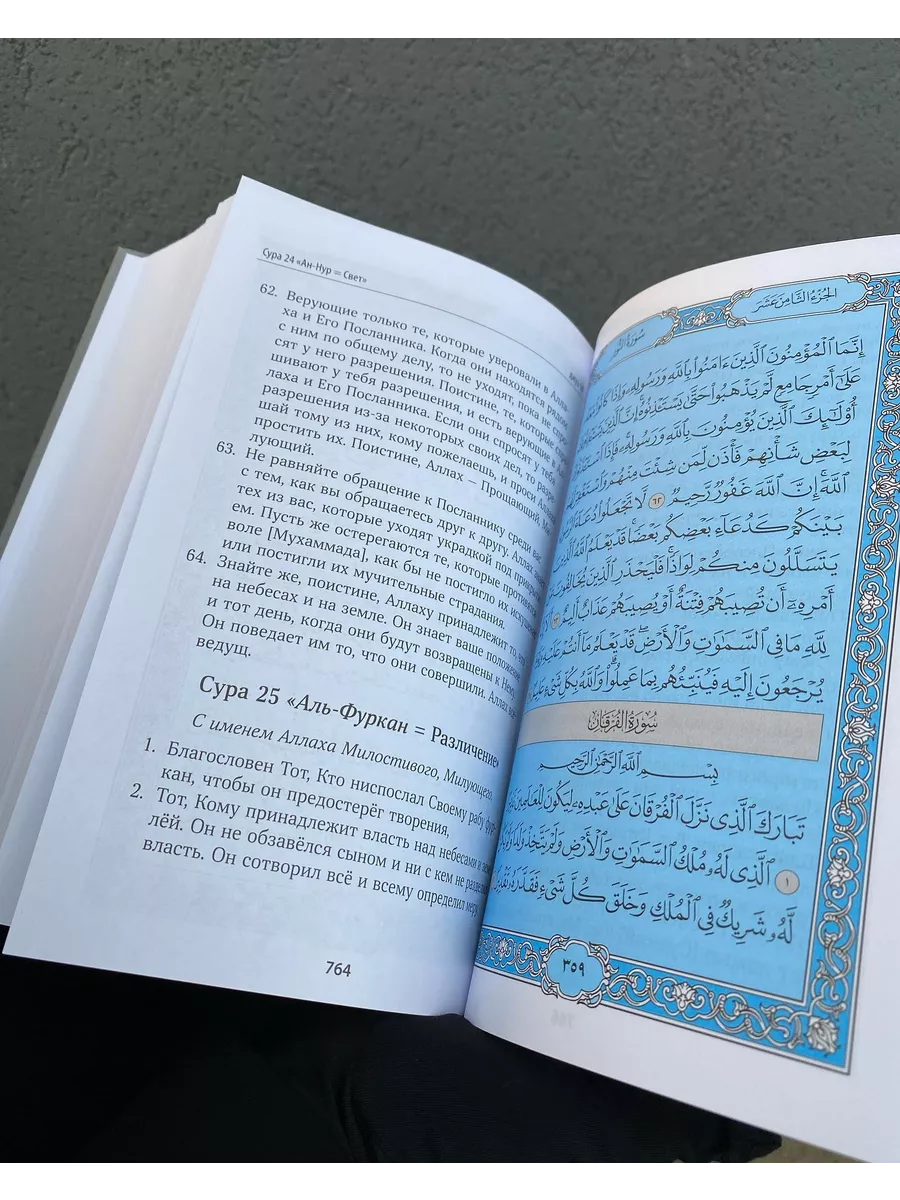 Сура 24 «Ан-Нур = Свет»
62. Верующие только те, которые уверовали в Алла-
ха и Его Посланника. Когда они находятся рядом
с ним по общему делу, то не уходят, пока не спро-
сят у него разрешения. Поистине, те, которые спра-
шивают у тебя разрешения, и есть верующие в Ал-
лаха и Его Посланника. Если они спросят у тебя
разрешения из-за некоторых своих дел, то разре-
шай тому из них, кому пожелаешь, и проси Алла
простить их. Поистине, Аллах – Прощающий, Ми
лующий.
63. Не равняйте обращение к Посланнику среди вас
с тем, как вы обращаетесь друг к другу. Аллах знает
тех из вас, которые уходят украдкой под при
ем. Пусть же остерегаются те, которые противя
воле [Мухаммада], как бы не постигло их искуш
или постигли их мучительные страдания.
64. Знайте же, поистине, Аллаху принадлежит то, что
на небесах и на земле. Он знает ваше положение
и тот день, когда они будут возвращены к Нему
Он поведает им то, что они совершили. Аллах
ведущ.
Сура 25 «Аль-Фуркан = Различение»
С именем Аллаха Милостивого, Милующего.
1. Благословен Тот, Кто ниспослал Своему рабу фур-
кан, чтобы он предостерёг творения,
2. Тот, Кому принадлежит власть над небесами и зем
лёй. Он не обзавёлся сыном и ни с кем не разделя
власть. Он сотворил всё и всему определил меру
764
الجزء الثامن عشر
سورة النور
إِنَّمَا الْمُؤْمِنُونَ الَّذِينَ ءَامَنُوا بِاللَّهِ وَرَسُولِهِ وَإِذَا كَانُوا
عَلَىٰ أَمْرٍ جَامِعٍ لَّمْ يَذْهَبُوا حَتَّىٰ يَسْتَـْٔذِنُوهُ إِنَّ الَّذِينَ
أُولَٰئِكَ الَّذِينَ يُؤْمِنُونَ بِاللَّهِ وَرَسُولِهِ فَإِذَا
لِبَعْضِ شَأْنِهِمْ فَأْذَن لِّمَن شِئْتَ مِنْهُمْ وَاسْتَغْفِرْ
اللَّهَ إِنَّ اللَّهَ غَفُورٌ رَّحِيمٌ ٦٢ لَّا تَجْعَلُوا دُعَاءَ
بَيْنَكُمْ كَدُعَاءِ بَعْضِكُم بَعْضًا قَدْ يَعْلَمُ اللَّهُ
يَتَسَلَّلُونَ مِنكُمْ لِوَاذًا فَلْيَحْذَرِ الَّذِينَ يُخَالِفُونَ
أَمْرِهِ أَن تُصِيبَهُمْ فِتْنَةٌ أَوْ يُصِيبَهُمْ عَذَابٌ أَلِيمٌ ٦٣
لِلَّهِ مَا فِي السَّمَٰوَٰتِ وَالْأَرْضِ قَدْ يَعْلَمُ مَا أَنتُمْ عَلَيْهِ
يُرْجَعُونَ إِلَيْهِ فَيُنَبِّئُهُم بِمَا عَمِلُوا وَاللَّهُ بِكُلِّ شَيْءٍ
سُورَةُ الْفُرْقَانِ
بِسْمِ اللَّهِ الرَّحْمَٰنِ الرَّحِيمِ
تَبَارَكَ الَّذِي نَزَّلَ الْفُرْقَانَ عَلَىٰ عَبْدِهِ لِيَكُونَ لِلْعَالَمِينَ
١ الَّذِي لَهُ مُلْكُ السَّمَٰوَٰتِ وَالْأَرْضِ وَلَمْ يَتَّخِذْ وَلَدًا
لَّهُ شَرِيكٌ فِي الْمُلْكِ وَخَلَقَ كُلَّ شَيْءٍ فَقَدَّرَهُ
٣٥٩